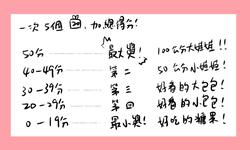 一次 5個 20, 加總得分!
50分 最大獎! 100公分大娃娃!!
40-49分 第二 50公分小娃娃!
30-39分 第三 好看的大包包!
20-29分 第四 好看的小包包!
0-19分 最小獎! 好吃的糖果!